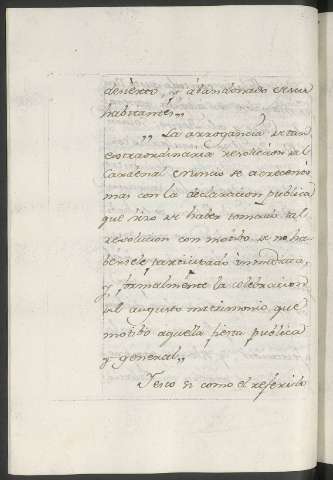 desierto, y abandonado de sus
habitantes,,
,, La arrogancia de tan
extraordinaria resolucion del
Cardenal Nuncio se acrecentó
mas con la declaracion publica
que hizo de haver tomado tal
resolucion con motibo de no ha
bersele participado
y formalmente la celebracion
del augusto matrimonio que
motibó aquella fiesta publica
y general,,
Esto es como el referido